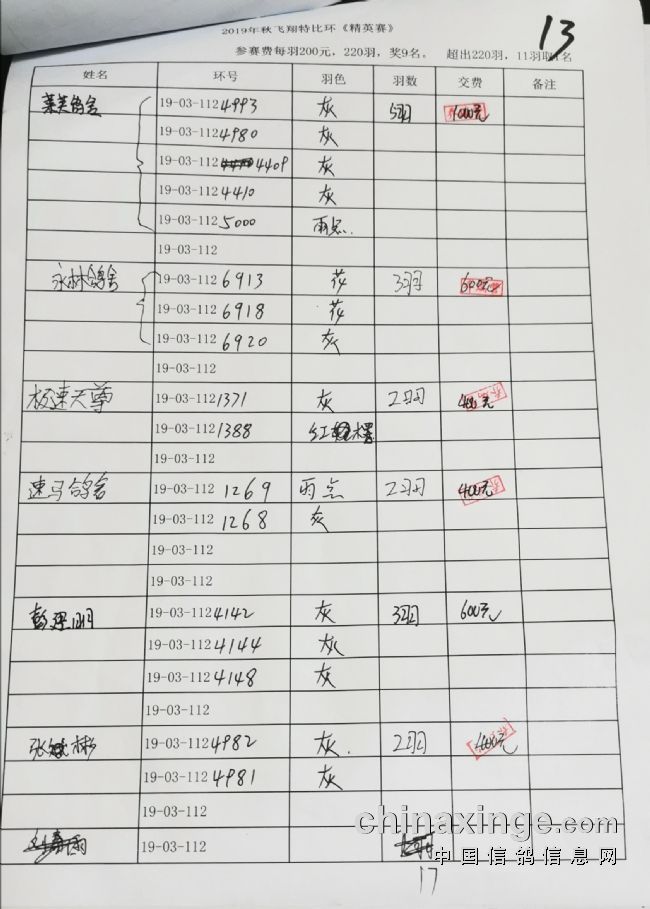 2019年秋飞翔特比环《精英赛》
13
参赛费每羽200元，220羽，奖9名。 超出220羽，11羽取1名
姓名 环号 羽色 羽数 交费 备注
莱芙鸽舍 19-03-112 4993 灰 5羽 1000元
19-03-112 4980 灰
19-03-112 4409 灰
19-03-112 4410 灰
19-03-112 5000 雨点.
19-03-112
永林鸽舍 19-03-112 6913 花 3羽 600元
19-03-112 6918 花
19-03-112 6920 灰
19-03-112
极速天尊 19-03-112 1371 灰 2羽 400元
19-03-112 1388 红楞
19-03-112
速马鸽舍 19-03-112 1269 雨点 2羽 400元
19-03-112 1268 灰
19-03-112
19-03-112
19-03-112 4142 灰 3羽 600元
19-03-112 4144 灰
19-03-112 4148 灰
19-03-112
张彬 19-03-112 4982 灰. 2羽 400元
19-03-112 4981 灰
19-03-112
19-03-112
17
chinaxinge.com
中国信鸽信息网